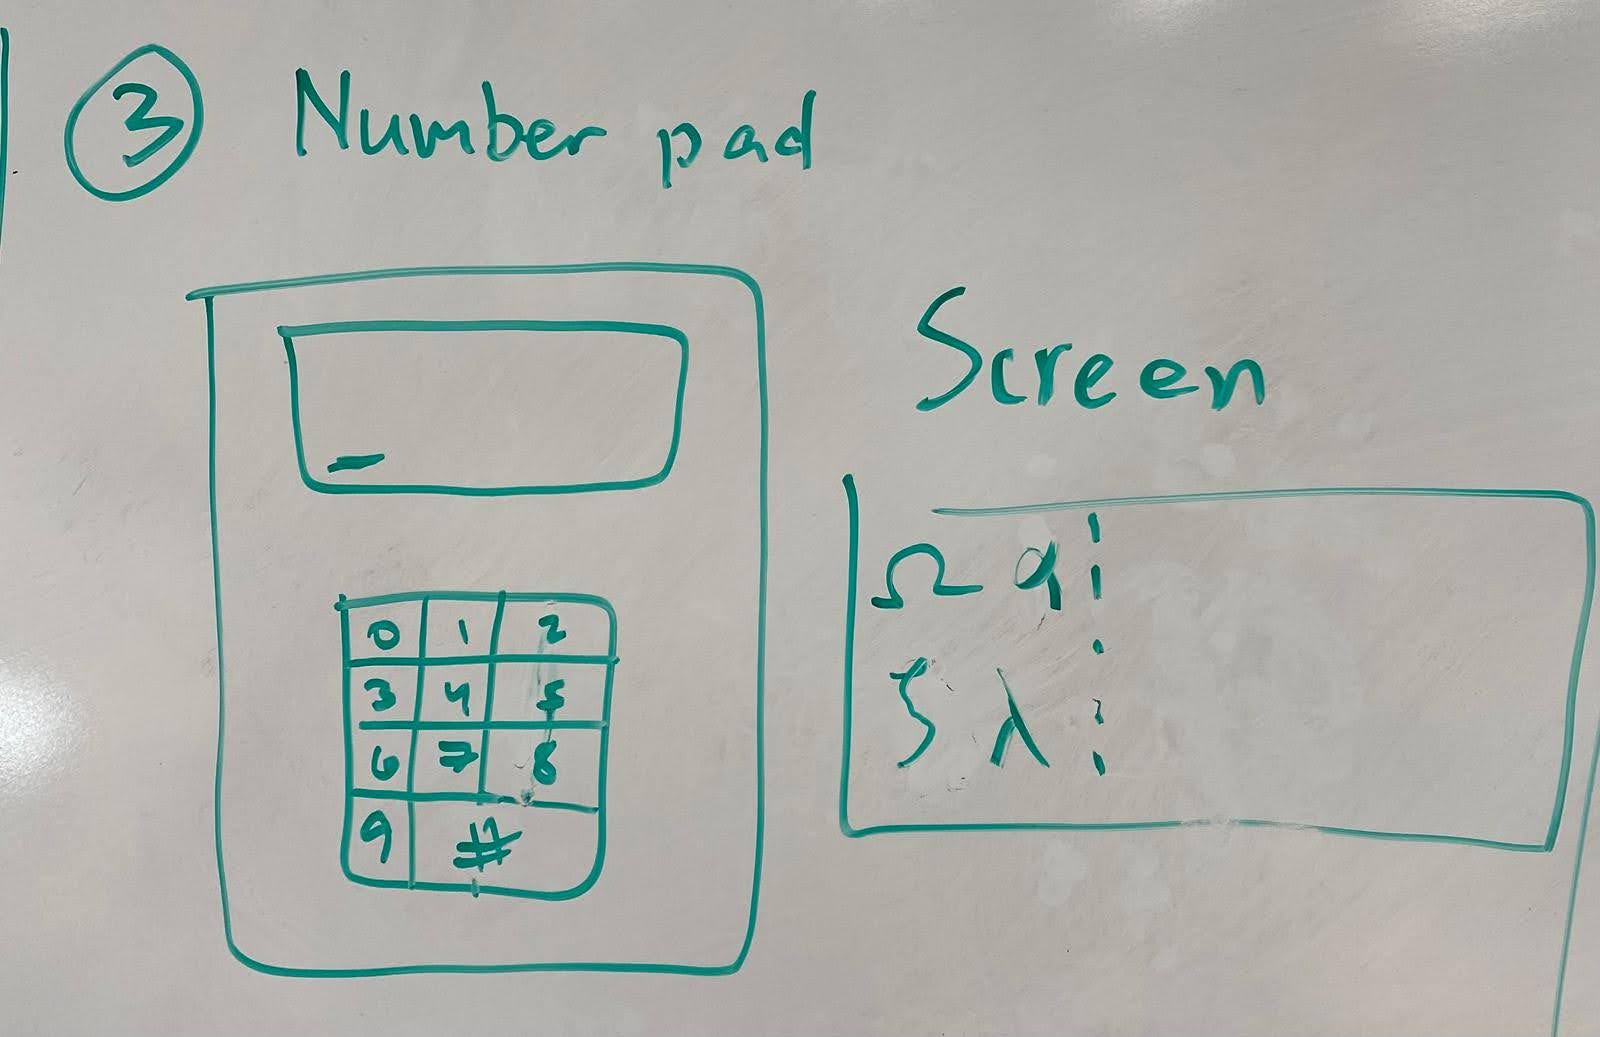 3 Number pad
0 1 2
3 4 5
6 7 8
9 #
Screen
Ω q
ζ λ